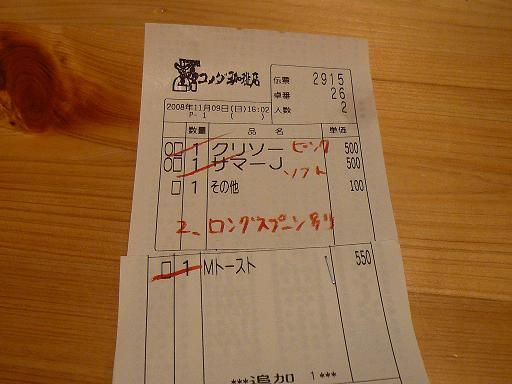 コメダ珈琲店
伝票 2915
卓番 26
2008年11月09日(日)16:02
人数 2
P- 1 ( )
数量 品名 単価
1 クリソー ピンク 500
1 サマーJ ソフト 500
1 その他 100
2、ロングスプーン
1 Mトースト 550
***追加 1***